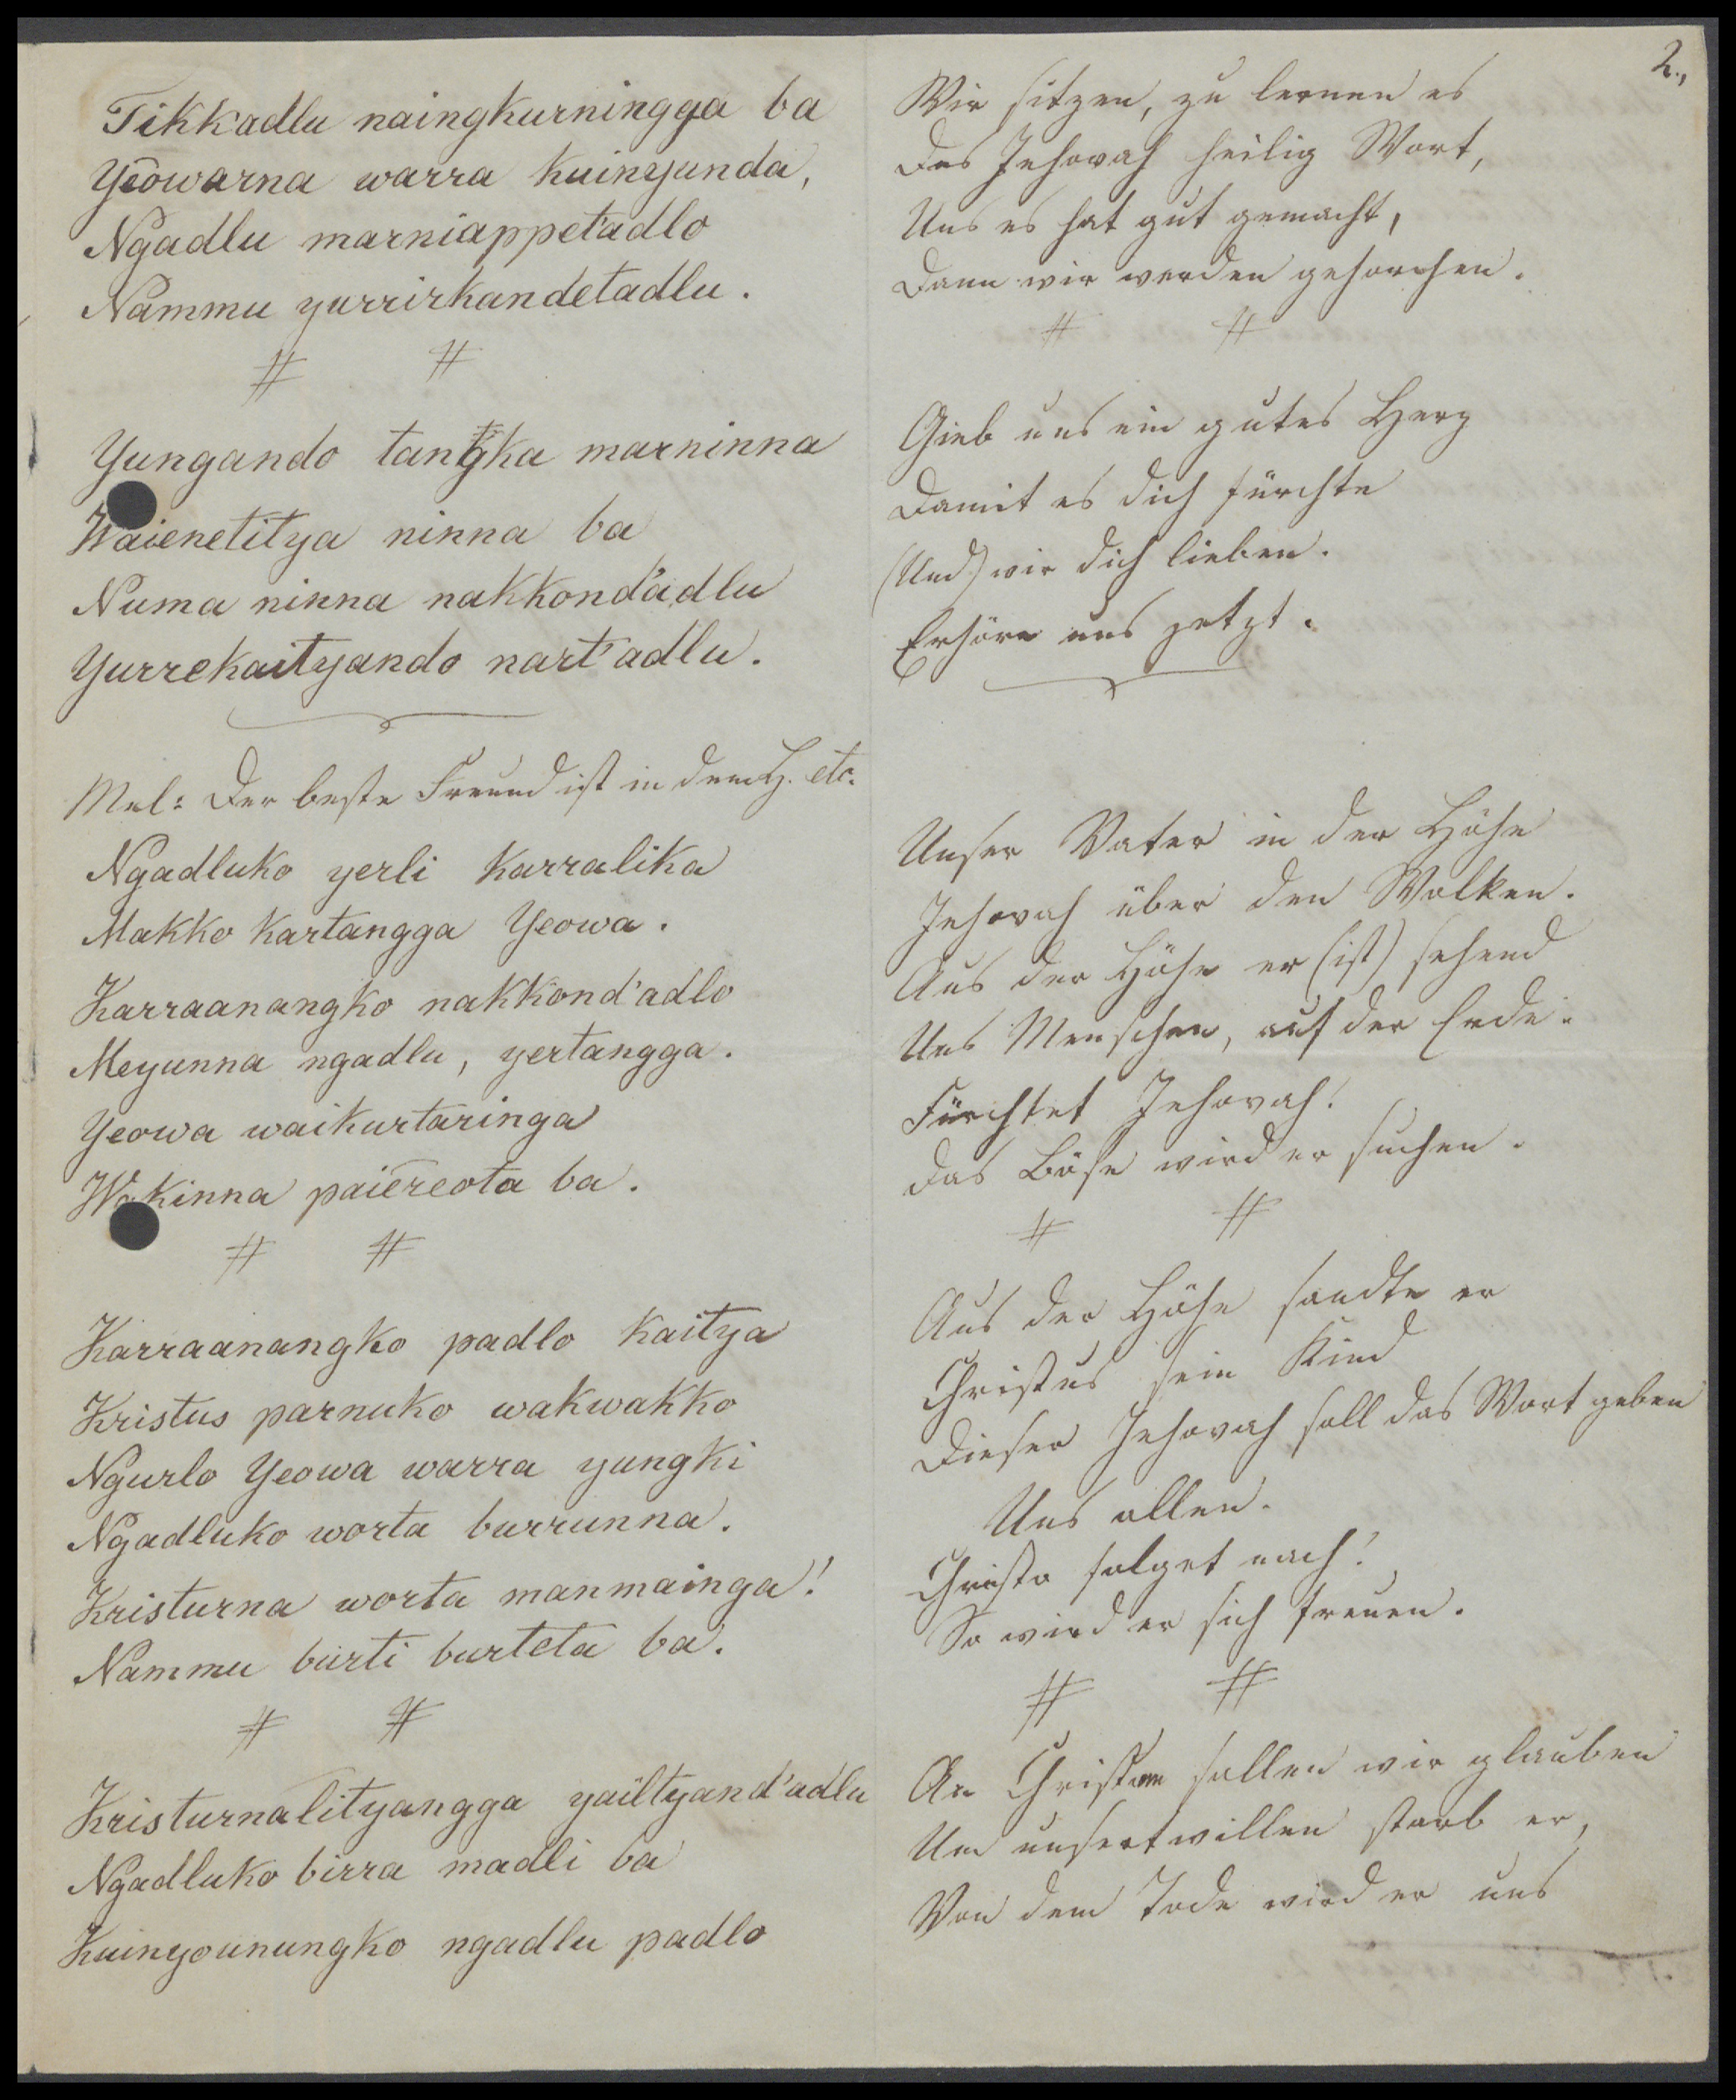 2.,
Tikkadlu naingkurningga ba
Yeowarna warra kuinyunda,
Ngadlu marniappet'adlo
Nammu yurrirkandetadlu.
# #
Yungando tangka marninna
Waienetitya ninna ba
Numa ninna nakkond'adlu
Yurrekaityando nart'adlu.
Mel: Der beste Freund ist in dem H. etc.
Ngadluko yerli karralika
Makko kartangga Yeowa.
Karraanangko nakkond'adlo
Meyunna ngadlu, yertangga.
Yeowa waikurtaringa
Wakinna paiereota ba.
# #
Karraanangko padlo kaitya
Kristus parnuko wakwakko
Ngurlo Yeowa warra yungki
Ngadluko worta burrunna.
Kristurna worta manmainga!
Nammu burti burteta ba.
# #
Kristurnalityangga yailtyand'adlu
Ngadluko birra madli ba
Kuinyounungko ngadlu padlo
Wir sitzen, zu lernen es
Das Jehovah heilig Wort,
Uns es hat gut gemacht,
Dann wir werden gehorchen.
# #
Gieb uns ein gutes Herz
Damit es dich fürchte
(Und) wir dich lieben.
Erhöre uns jetzt.
Unser Vater in der Höhe
Jehovah über den Wolken.
Aus der Höhe er (ist) sehend
Uns Menschen, auf der Erde.
Fürchtet Jehovah!
Das Böse wird er suchen.
# #
Aus der Höhe sandte er
Christus sein Kind
Dieser Jehovah soll das Wort geben
Uns allen.
Christo folget nach!
So wird er sich freuen.
# #
An Christum sollen wir glauben
Um unsertwillen starb er,
Von dem Tode wird er uns